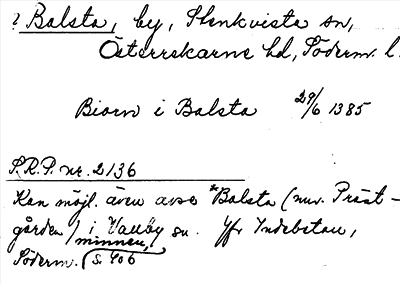 ? Balsta, by, Stenkvista sn,
Österrekarne hd, Söderm. l.
Biorn i Balsta 29/6 1385
S.R.P. nr. 2136
Kan möjl. även avse *Balsta (nuv. Präst-
gården) i Vallby sn. Jfr Indebetou,
Söderm. minnen, s. 406